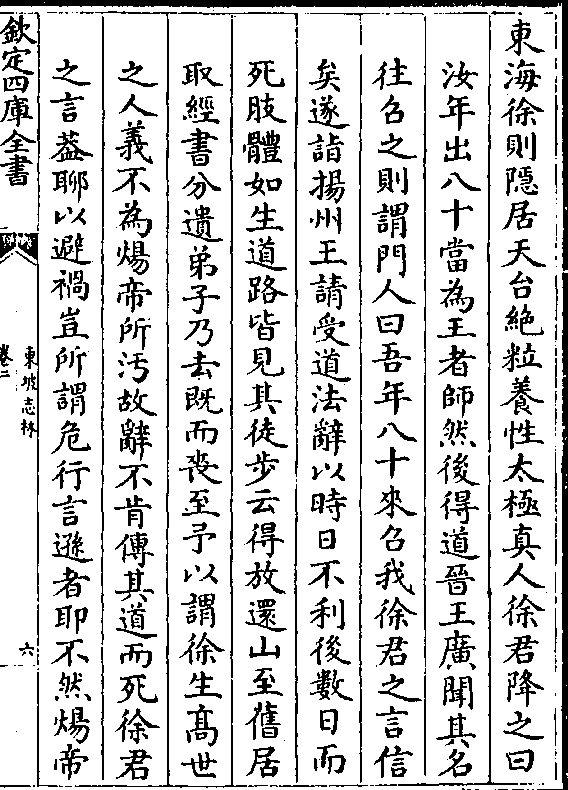 東海徐則隱居天台絶粒養性太極真人徐君降之曰
汝年出八十當為王者師然後得道晉王廣聞其名
往召之則謂門人曰吾年八十來召我徐君之言信
矣遂詣揚州王請受道法辭以時日不利後數日而
死肢體如生道路皆見其徒步云得放還山至舊居
取經書分遺弟子乃去既而喪至予以謂徐生髙世
之人義不為煬帝所汚故辭不肯傳其道而死徐君
之言葢聊以避禍豈所謂危行言遜者耶不然煬帝
欽定四庫全書
東坡志林
卷二
六